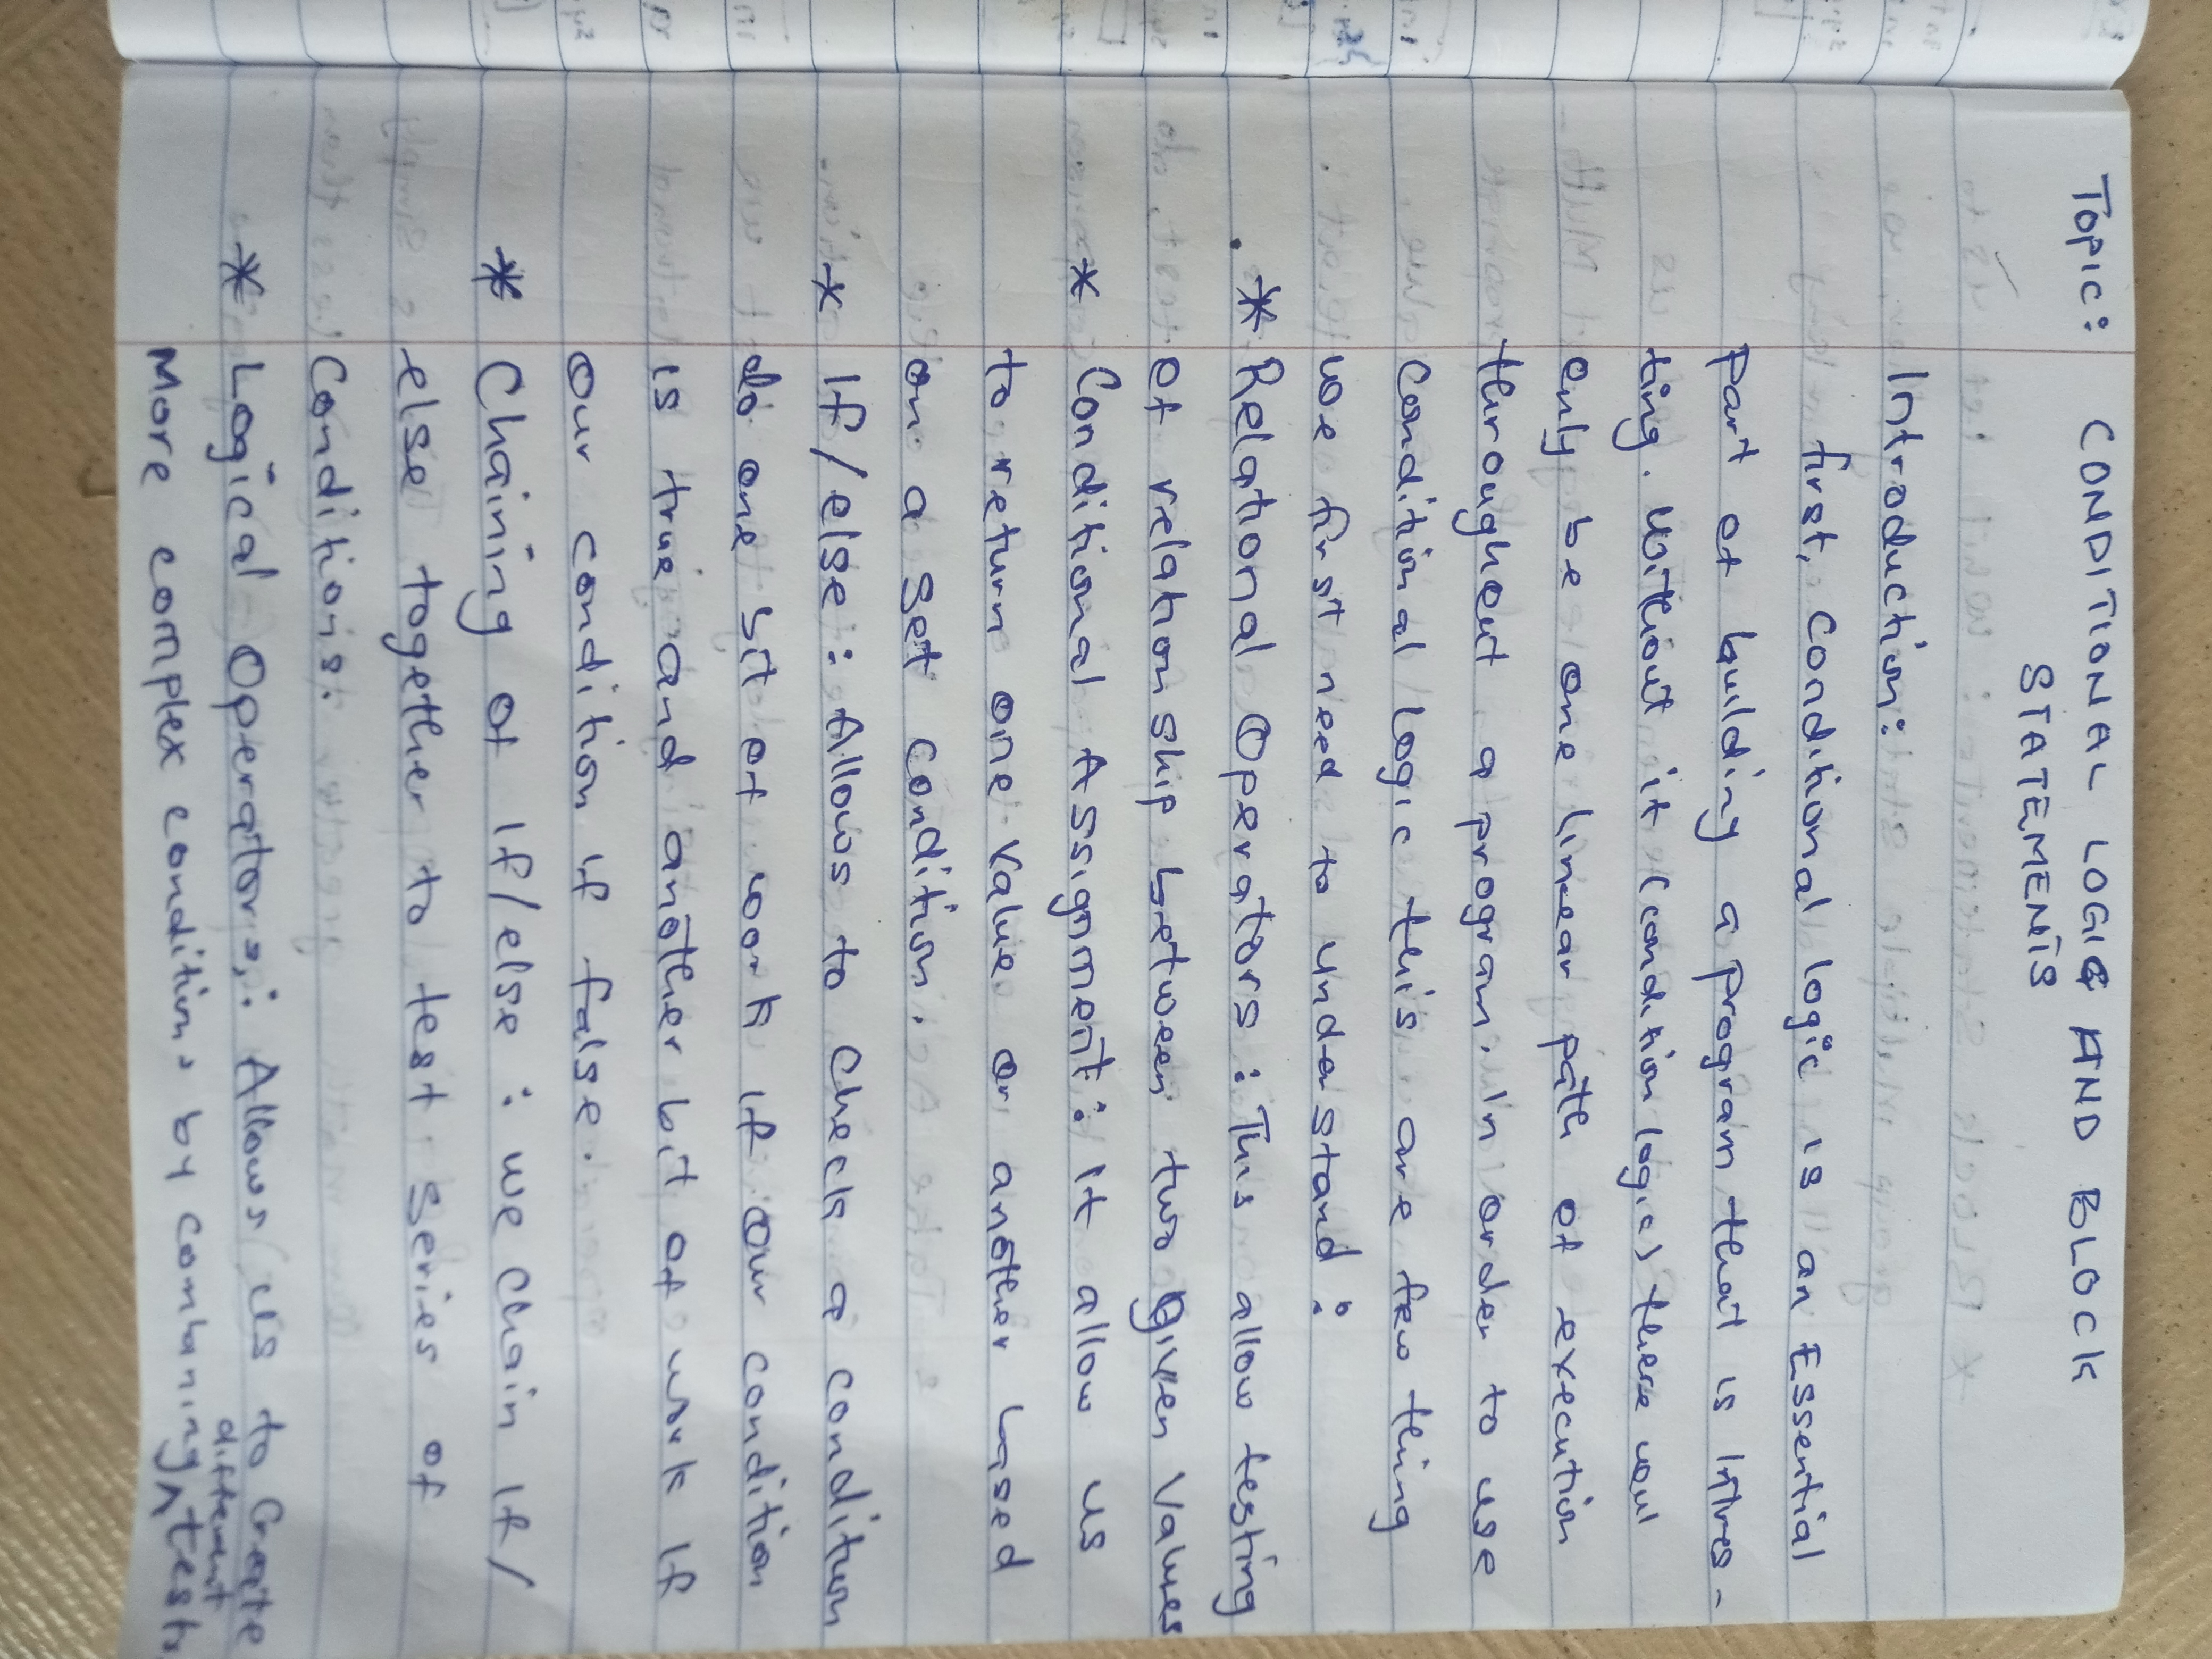 Topic: CONDITIONAL LOGIC AND BLOCK
STATEMENTS
Introduction:
first, Conditional logic is an Essential
part of building a program that is intres-
ting. Without it (condition logic) there woul
only be one linear path of execution
throughout a program. In order to use
Conditional Logic this are few thing
we first need to understand:
* Relational Operators: This allow testing
of relationship between two given values
* Conditional Assignment: It allow us
to return one value or another based
on a set condition.
* If/else: Allows to check a condition
do one bit of work if our condition
is true and another bit of work if
our condition if false.
* Chaining of If/else: we chain if/
else together to test series of
Conditions.
* Logical Operators: Allows us to Create
More complex conditions by combaning different tests